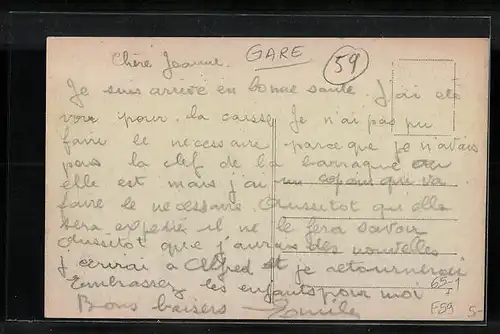 GARE
59
Chère Jeanne.
Je suis arrivé en bonne santé. J'ai été
voir pour la caisse Je n'ai pas pu
faire le necessaire parce que je n'avais
pas la clef de la barraque ou
elle est mais j'ai un copain qui va
faire le necessaire. Aussitot qu'elle
sera expediée il ne le fera savoir
Aussitot que j'aurais des nouvelles
j'ecrirai à Alfred et je retournerai
Embrassez les enfants pour moi
Bons baisers Emile
65-1
F59
5-